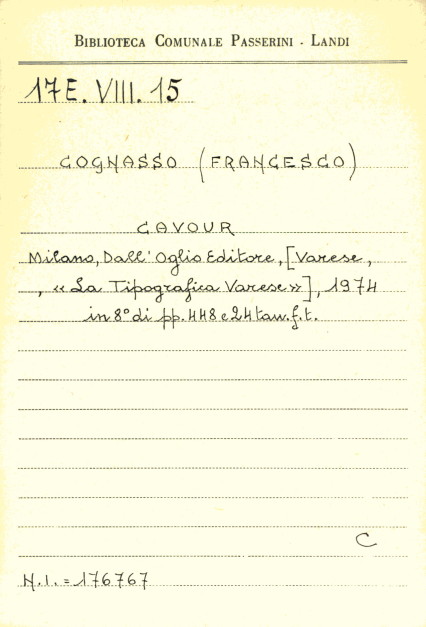 BIBLIOTECA COMUNALE PASSERINI - LANDI
17E. VIII. 15
COGNASSO (FRANCESCO)
CAVOUR
Milano, Dall'Oglio Editore, [Varese,
, «La Tipografica Varese»], 1974
in 8° di pp. 448 e 24 tav. f. t.
C
N.I. = 176767